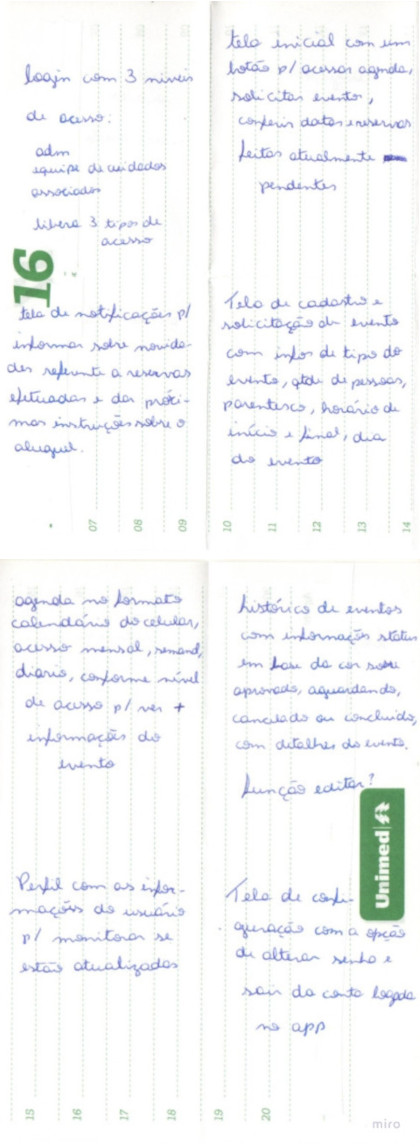 login com 3 níveis
de acesso.
adm
equipe de cuidados
associados
libera 3 tipos de
acesso
16
tela de notificações p/
informar sobre novida-
des referente a reservas
efetuadas e das próxi-
mas instruções sobre o
aluguel.
07 08 09
tela inicial com um
botão p/ acessar agenda,
solicitar evento,
conferir datas e reservas
feitas atualmente
pendentes
Tela de cadastro e
solicitação de evento
com infos de tipo do
evento, qtde de pessoas,
parentesco, horário de
início e final, dia
do evento
10 11 12 13 14
agenda no formato
calendário do celular,
acesso mensal, semanal,
diario, conforme nível
de acesso p/ ver +
informações do
evento
Perfil com as infor-
mações do usuário
p/ monitorar se
estão atualizadas
15 16 17 18
histórico de eventos
com informações status
em base da cor sobre
aprovado, aguardando,
cancelado ou concluído,
com detalhes do evento.
função editar?
Unimed
Tela de confi-
guração com a opção
de alterar senha e
sair da conta logada
no app
19 20
miro